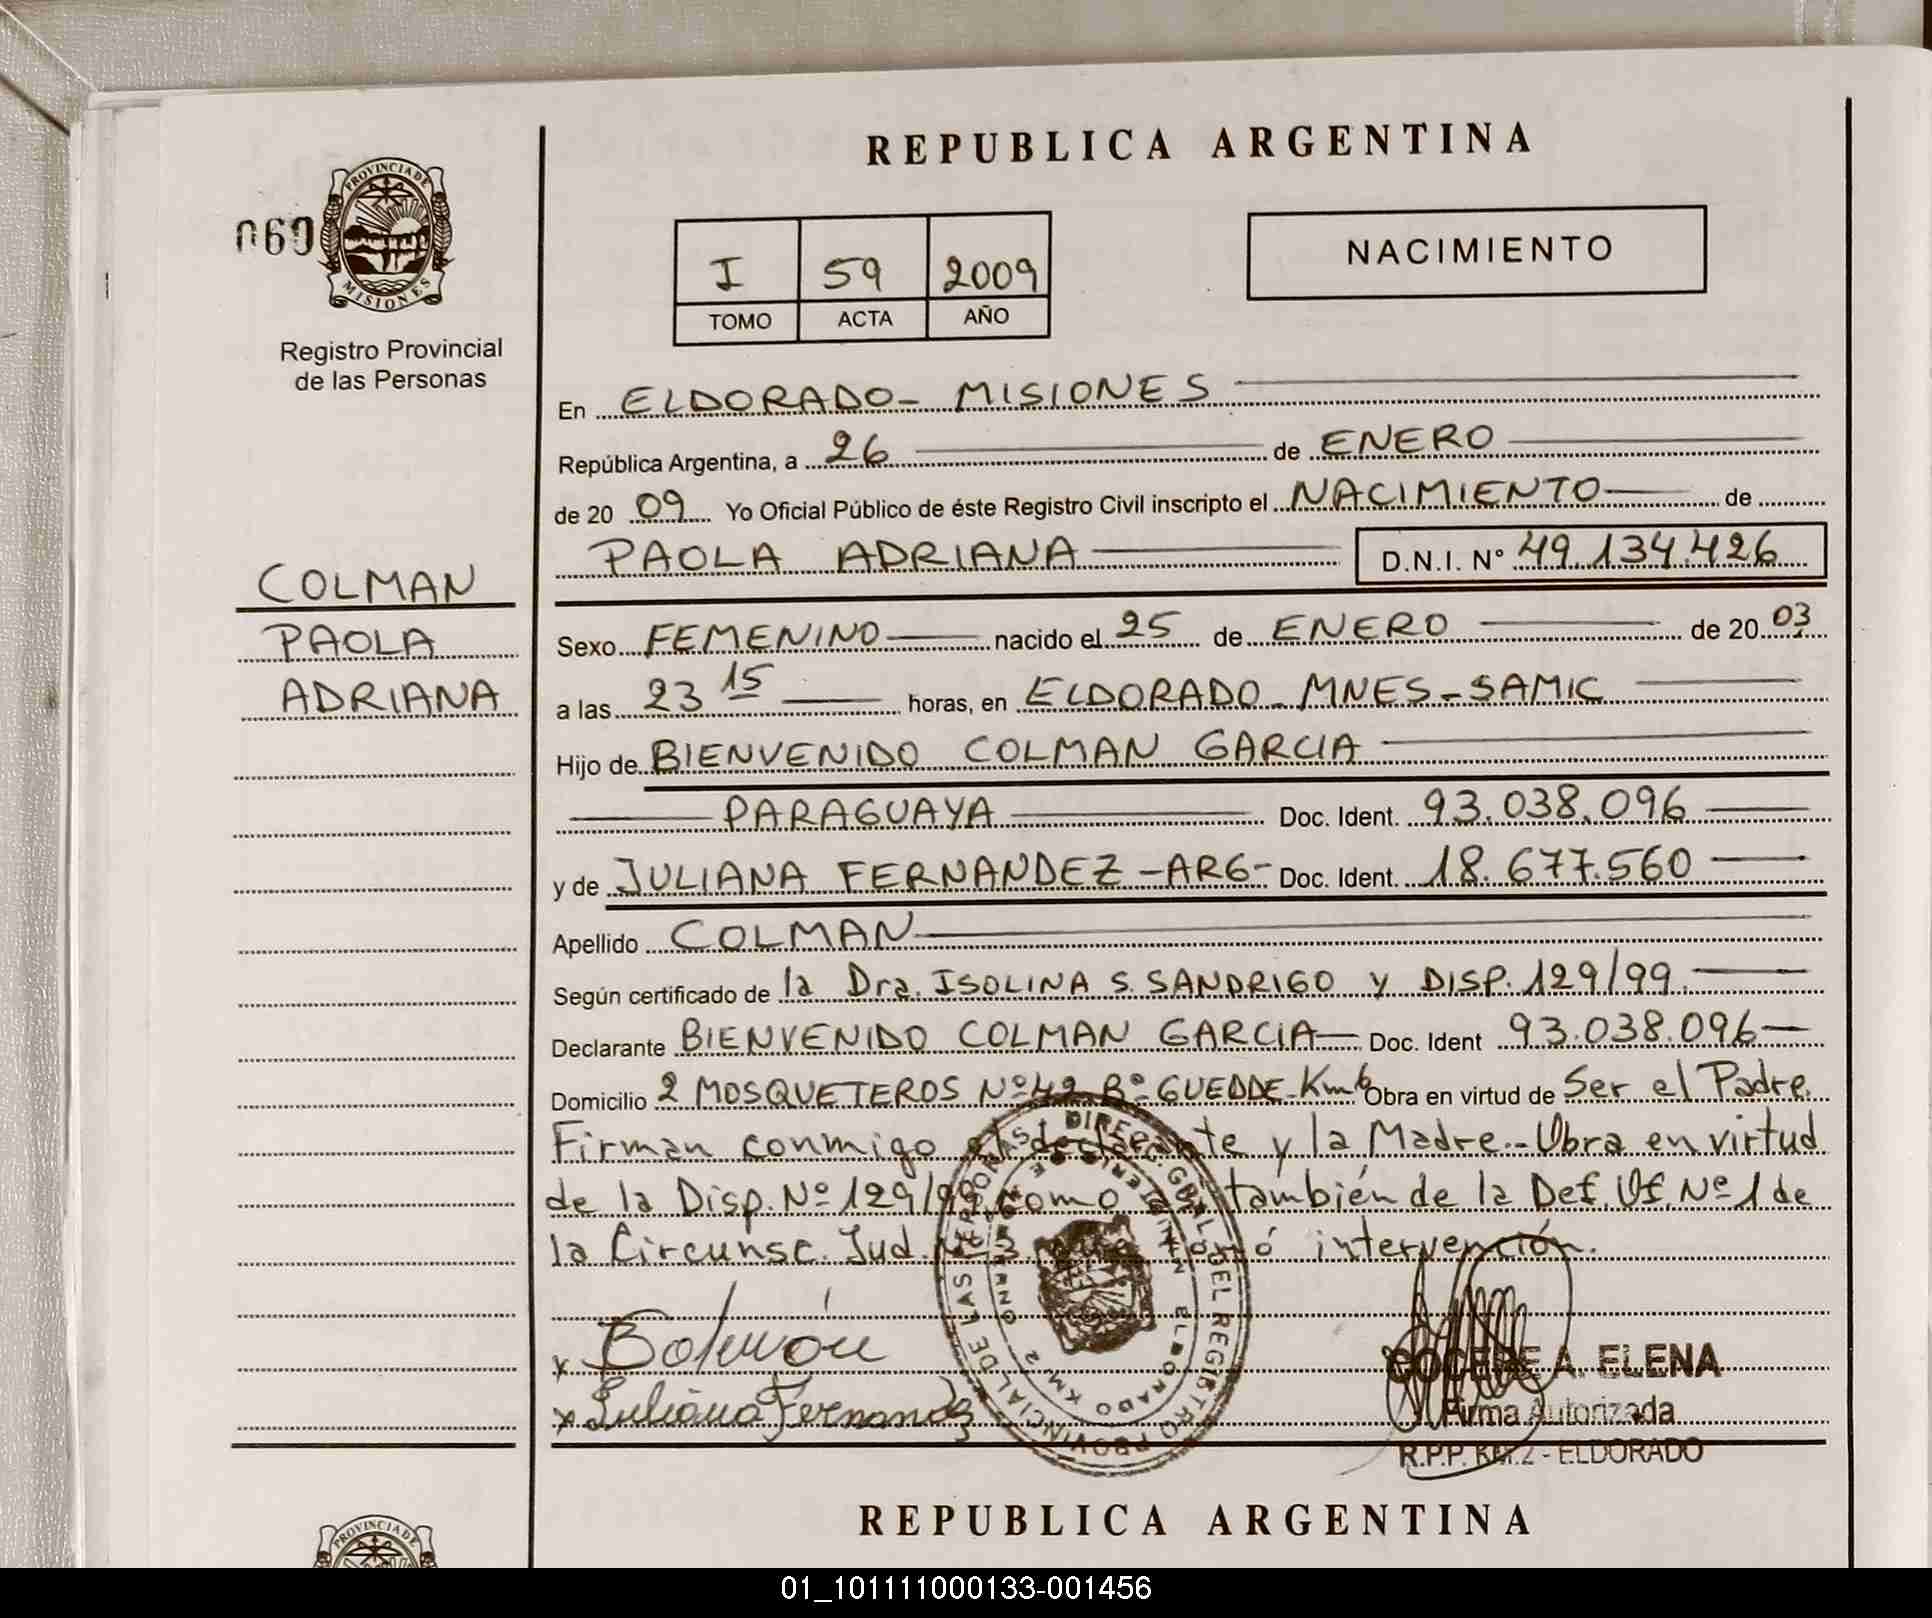 REPUBLICA ARGENTINA
060
PROVINCIA DE
MISIONES
Registro Provincial
de las Personas
I 59 2009
TOMO ACTA AÑO
NACIMIENTO
En ELDORADO- MISIONES
República Argentina, a 26 de ENERO
de 20 09 Yo Oficial Público de éste Registro Civil inscripto el NACIMIENTO de
PAOLA ADRIANA D.N.I. N° 49.134.426
COLMAN
PAOLA
ADRIANA
Sexo FEMENINO nacido el 25 de ENERO de 20 03
a las 23 15 horas, en ELDORADO - MNES - SAMIC
Hijo de BIENVENIDO COLMAN GARCIA
PARAGUAYA Doc. Ident. 93.038.096
y de JULIANA FERNANDEZ -ARG- Doc. Ident. 18.677.560
Apellido COLMAN
Según certificado de la Dra. ISOLINA S. SANDRIGO y DISP. 129/99
Declarante BIENVENIDO COLMAN GARCIA Doc. Ident 93.038.096
Domicilio 2 MOSQUETEROS Nº 42 Bº GUEDDE - Km 6 Obra en virtud de Ser el Padre.
Firman conmigo el declarante y la Madre.- Obra en virtud
de la Disp. Nº 129/99 como también de la Def. Of. Nº 1 de
la Circunsc. Jud. que tomó intervención.
x
x Juliana Fernandez
DIRECC. GRAL. DEL REGISTRO PROVINCIAL DE LAS PERSONAS
ELDORADO KM 2
A. ELENA
Firma Autorizada
R.P.P. KM.2 - ELDORADO
REPUBLICA ARGENTINA
PROVINCIA DE
01_101111000133-001456